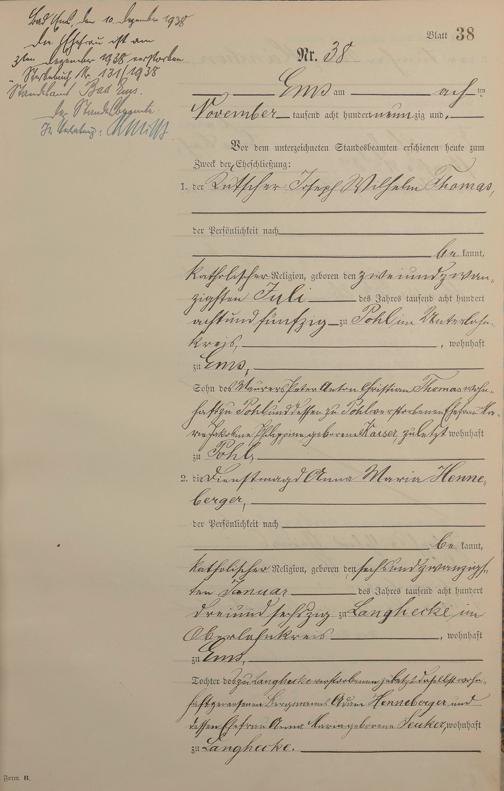 Bad Ems, den 10. Dezember 1938
Die Ehefrau ist am
3ten Dezember 1938 verstorben
Sterbebuch Nr. 131/1938
Standesamt Bad Ems.
Der Standesbeamte
In Vertretung:
Blatt 38
Nr. 38
Ems am acht ten
November tausend acht hundert neun zig und
Vor dem unterzeichneten Standesbeamten erschienen heute zum
Zweck der Eheschließung:
1. der Kutscher Joseph Wilhelm Thomas,
der Persönlichkeit nach
be kannt,
katholischer Religion, geboren den zwei und zwan-
zigsten Juli des Jahres tausend acht hundert
acht und fünfzig zu Pohl im Unterlahn-
kreis, , wohnhaft
zu Ems,
Sohn des Maurers Peter Anton Christian Thomas wohn-
haft zu Pohl und dessen zu Pohl verstorbenen Ehefrau
Philippine geborene Kaiser, zuletzt wohnhaft
zu Pohl,
2. die Dienstmagd Anna Maria Henne-
berger,
der Persönlichkeit nach
be kannt,
katholischer Religion, geboren den sechs und zwanzigs-
ten Januar des Jahres tausend acht hundert
drei und sechszig zu Langhecke im
Oberlahnkreis , wohnhaft
zu Ems,
Tochter des zu Langhecke verstorbenen zuletzt daselbst wohn-
haft gewesenen Bergmanns Adam Henneberger und
dessen Ehefrau Anna Maria geborene wohnhaft
zu Langhecke.
Form B.